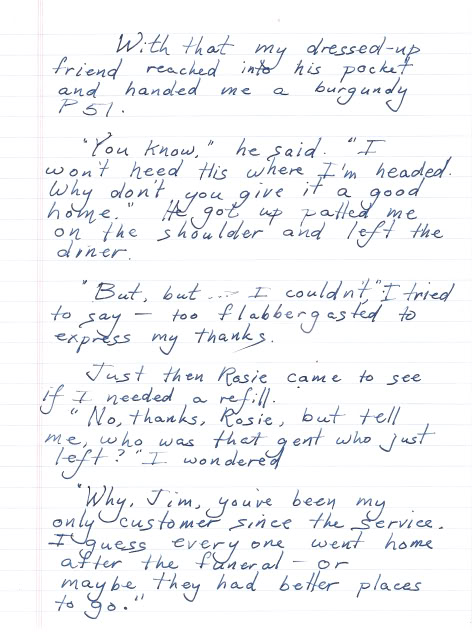 With that my dressed-up
friend reached into his pocket
and handed me a burgundy
P51.
"You know," he said. "I
won't need this where I'm headed.
Why don't you give it a good
home." He got up patted me
on the shoulder and left the
diner.
"But, but ... I couldn't" I tried
to say - too flabbergasted to
express my thanks.
Just then Rosie came to see
if I needed a refill.
"No, thanks, Rosie, but tell
me, who was that gent who just
left?" I wondered
"Why, Jim, you've been my
only customer since the service.
I guess every one went home
after the funeral - or
maybe they had better places
to go."